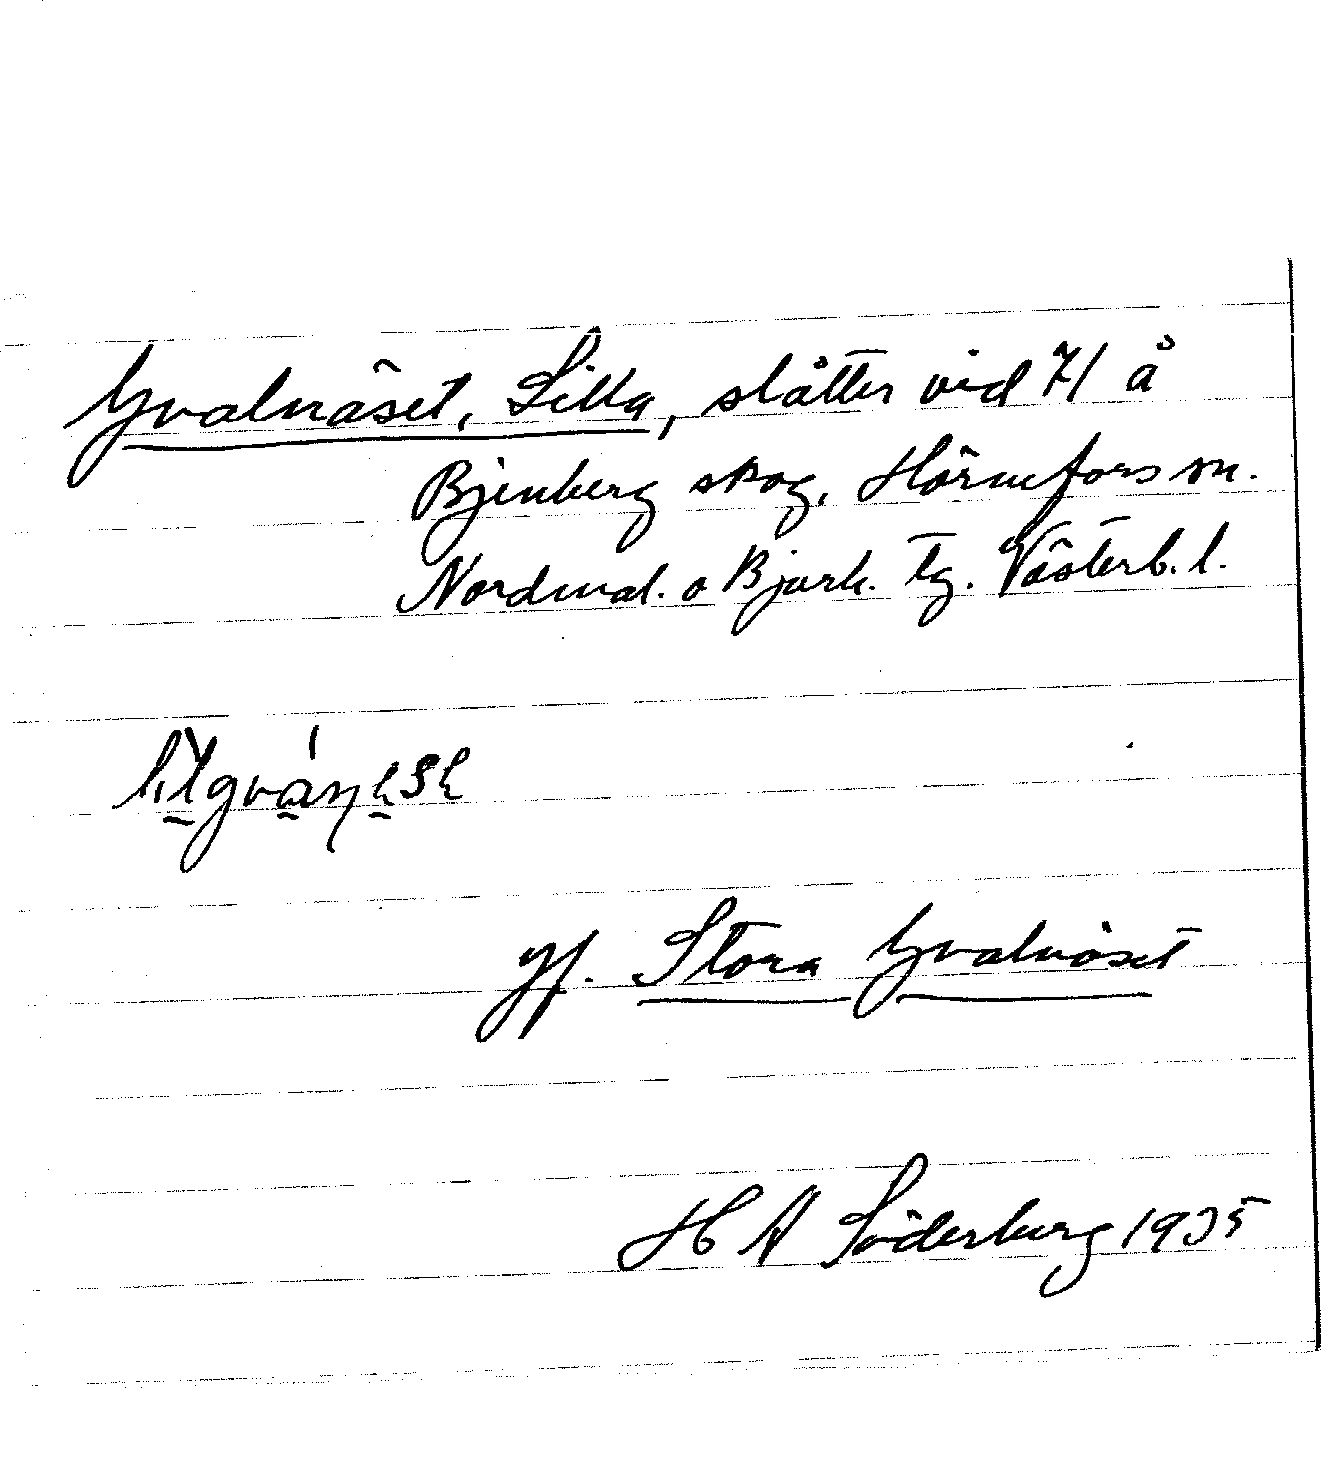 Gvalnäset, Lilla, slåtter vid 71 å
Bjenberg skog, Hörnefors sn.
Nordmal. o Bjurh. tg. Västerb. l.
jf. Stora Gvalnäset
H A Söderberg 1935